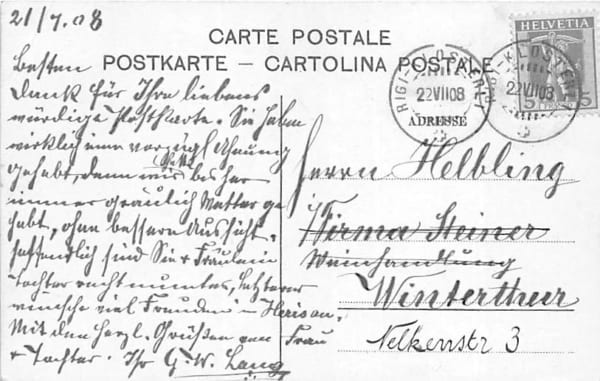 21/7.08
CARTE POSTALE
POSTKARTE — CARTOLINA POSTALE
HELVETIA
5 5
RIGI-KLÖSTERLI
22VII08
RIGI-KLÖSTERLI
22VII08
ADRESSE
Besten
Dank für Ihre liebens
würdige Postkarte. Sie haben
wirklich eine Ahnung
gehabt, denn wir bis her
immer gräulich Wetter ge
habt, ohne bessere Aussicht.
Hoffentlich sind Sie & Fräulein
Tochter recht munter, letzterer
wünsche viel Freuden in Herisau.
Mit den herzl. Grüßen von Frau
& Tochter. Ihr G. W. Lang
Herrn Helbling
Firma Steiner
Weinhandlung
Winterthur
Nelkenstr 3